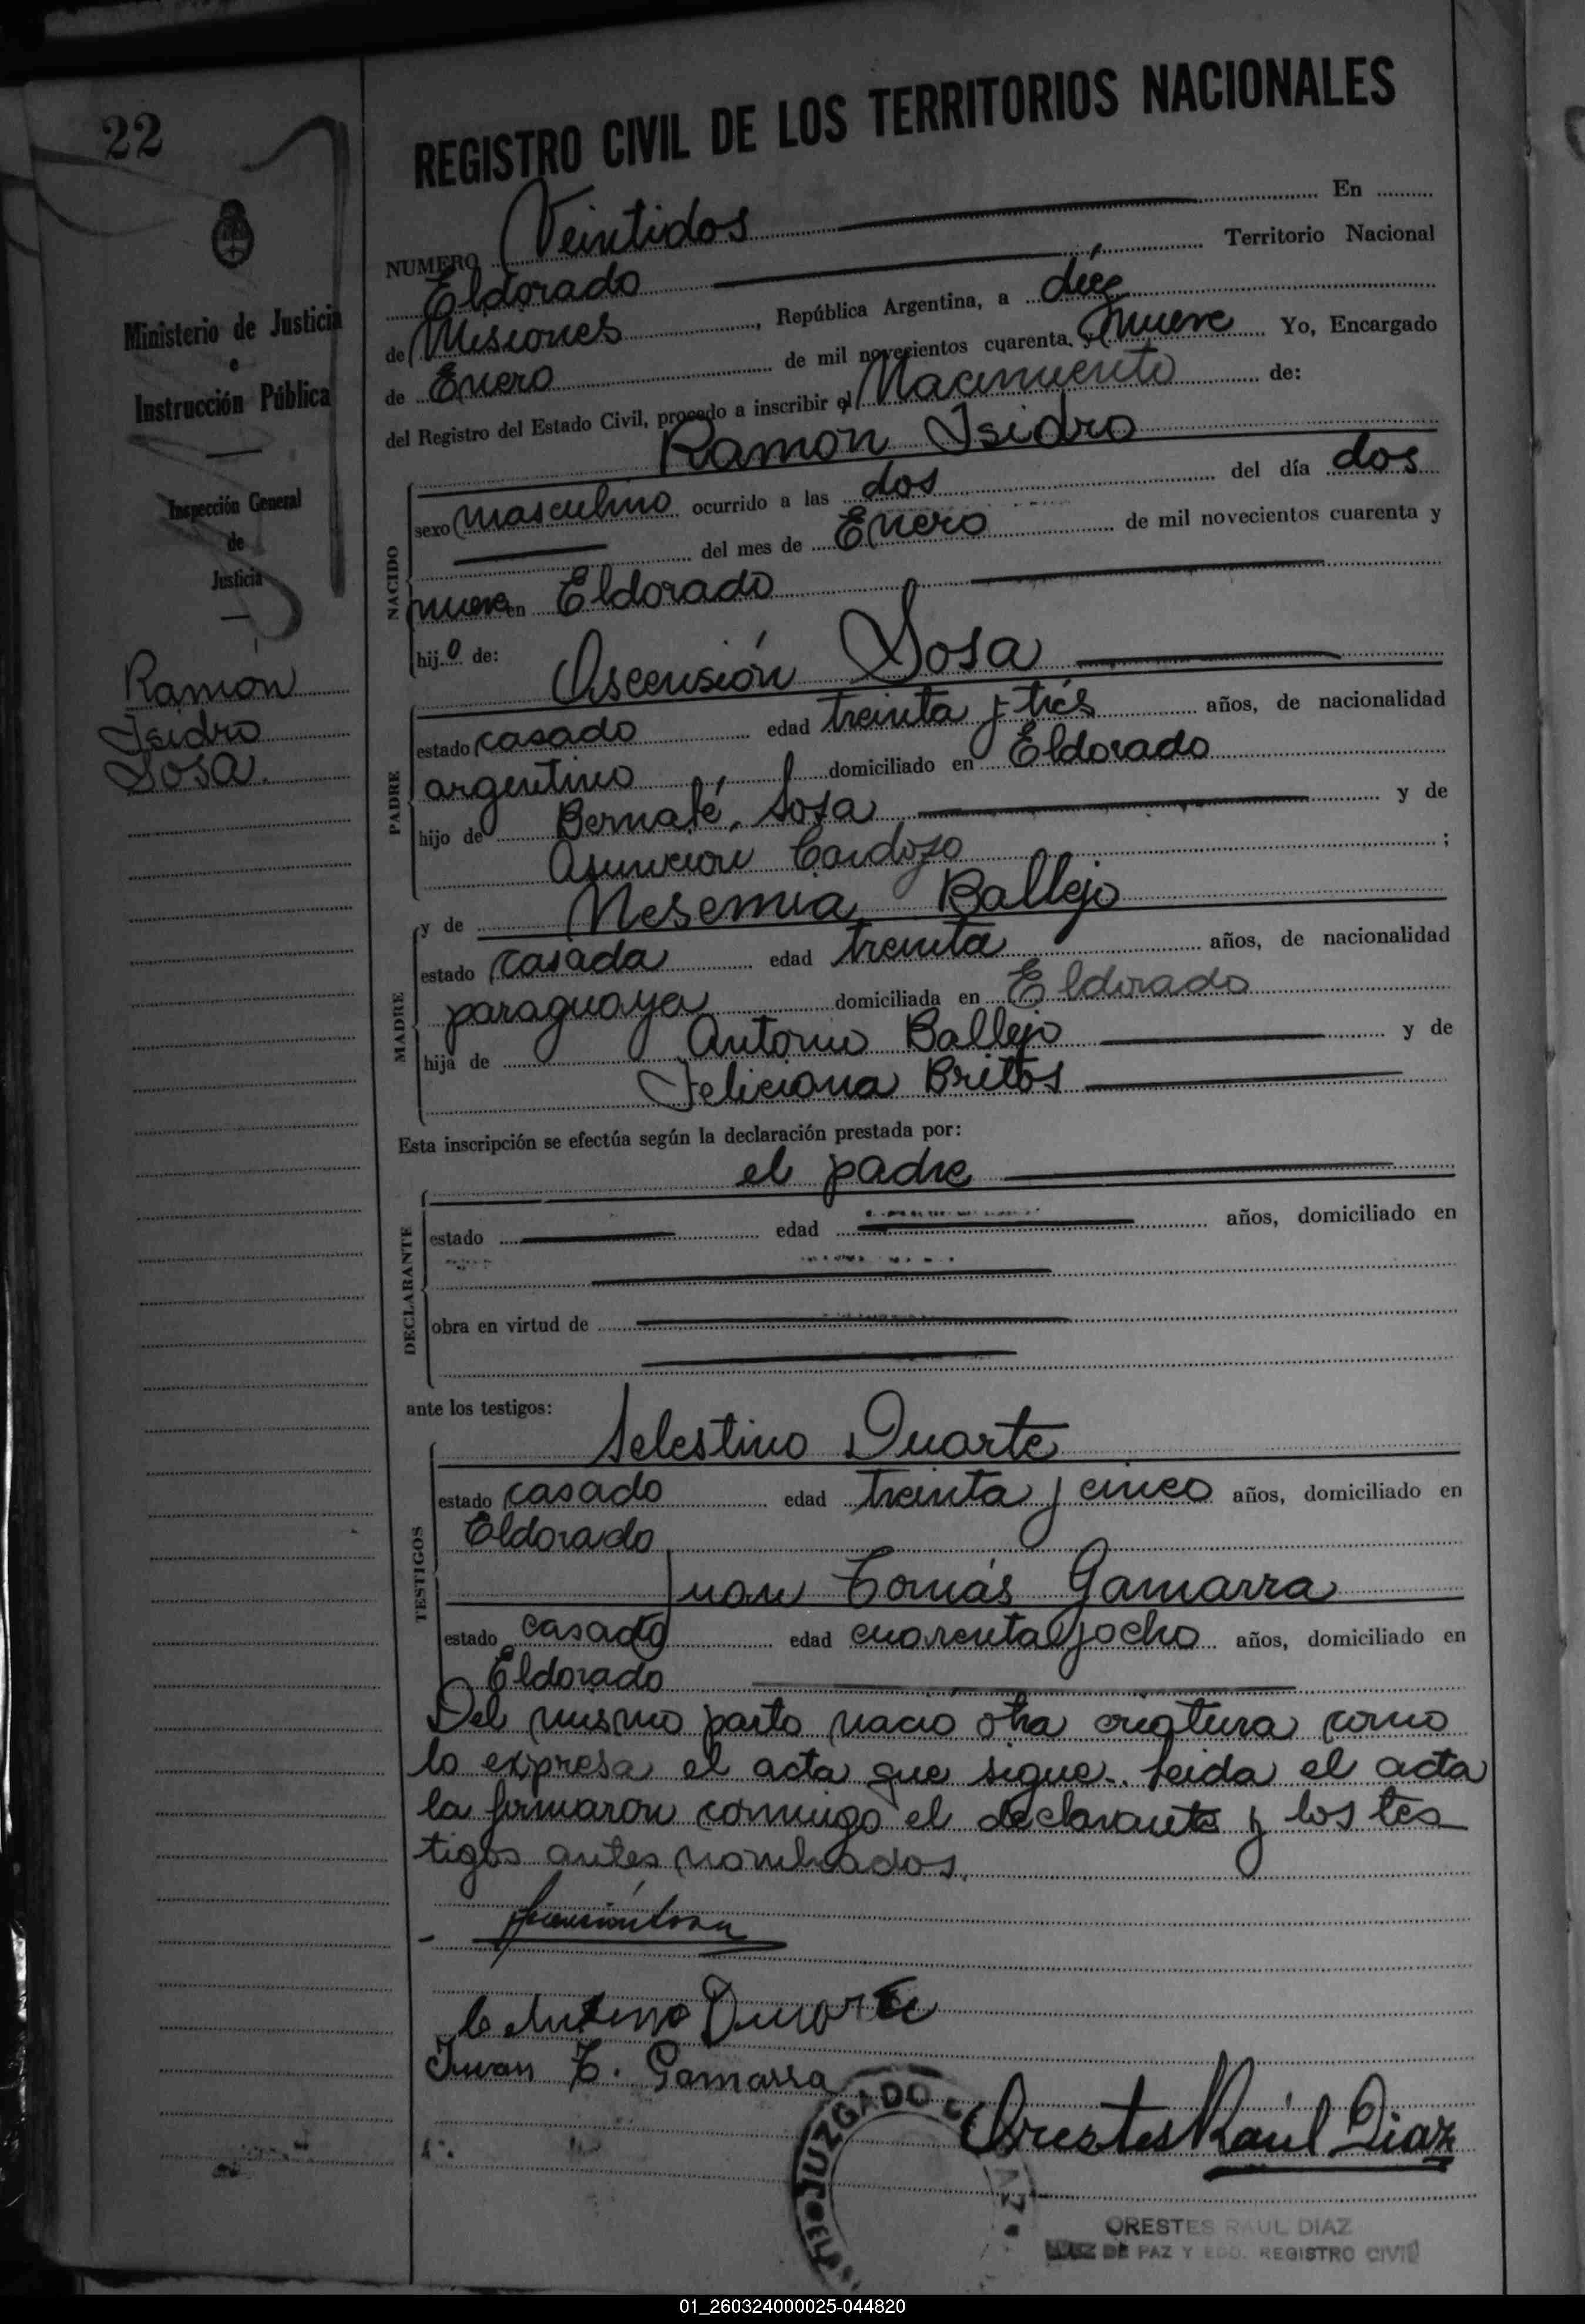 22
REGISTRO CIVIL DE LOS TERRITORIOS NACIONALES
NUMERO Veintidos En
Eldorado Territorio Nacional
de Misiones, República Argentina, a diéz
de Enero de mil novecientos cuarenta y nueve Yo, Encargado
del Registro del Estado Civil, procedo a inscribir el Nacimiento de:
Ramon Isidro
NACIDO
sexo masculino ocurrido a las dos del día dos
del mes de Enero de mil novecientos cuarenta y
nueve en Eldorado
hijo de:
Ascensión Sosa
PADRE
estado casado edad treinta y trés años, de nacionalidad
argentino domiciliado en Eldorado
hijo de Bernabé Sosa y de
Asunción Cardozo ;
y de Nesemia Ballejo
MADRE
estado casada edad treinta años, de nacionalidad
paraguaya domiciliada en Eldorado
hija de Antonio Ballejo y de
Feliciana Britos
Esta inscripción se efectúa según la declaración prestada por:
el padre
DECLARANTE
estado edad años, domiciliado en
obra en virtud de
ante los testigos:
TESTIGOS
Selestino Duarte
estado casado edad treinta y cinco años, domiciliado en
Eldorado
Juan Tomás Gamarra
estado casado edad cuarenta y ocho años, domiciliado en
Eldorado
Del mismo parto nacio otra criatura como
lo expresa el acta que sigue. Leida el acta
la firmaron conmigo el declarante y los tes
tigos antes nombrados.
Ascensión Sosa
Duarte
Juan T. Gamarra
Orestes Raúl Diaz
JUZGADO
ORESTES RAUL DIAZ
JUEZ DE PAZ Y ECD. REGISTRO CIVIL
Ministerio de Justicia
e
Instrucción Pública
Inspección General
de
Justicia
Ramon
Isidro
Sosa.
01_260324000025-044820